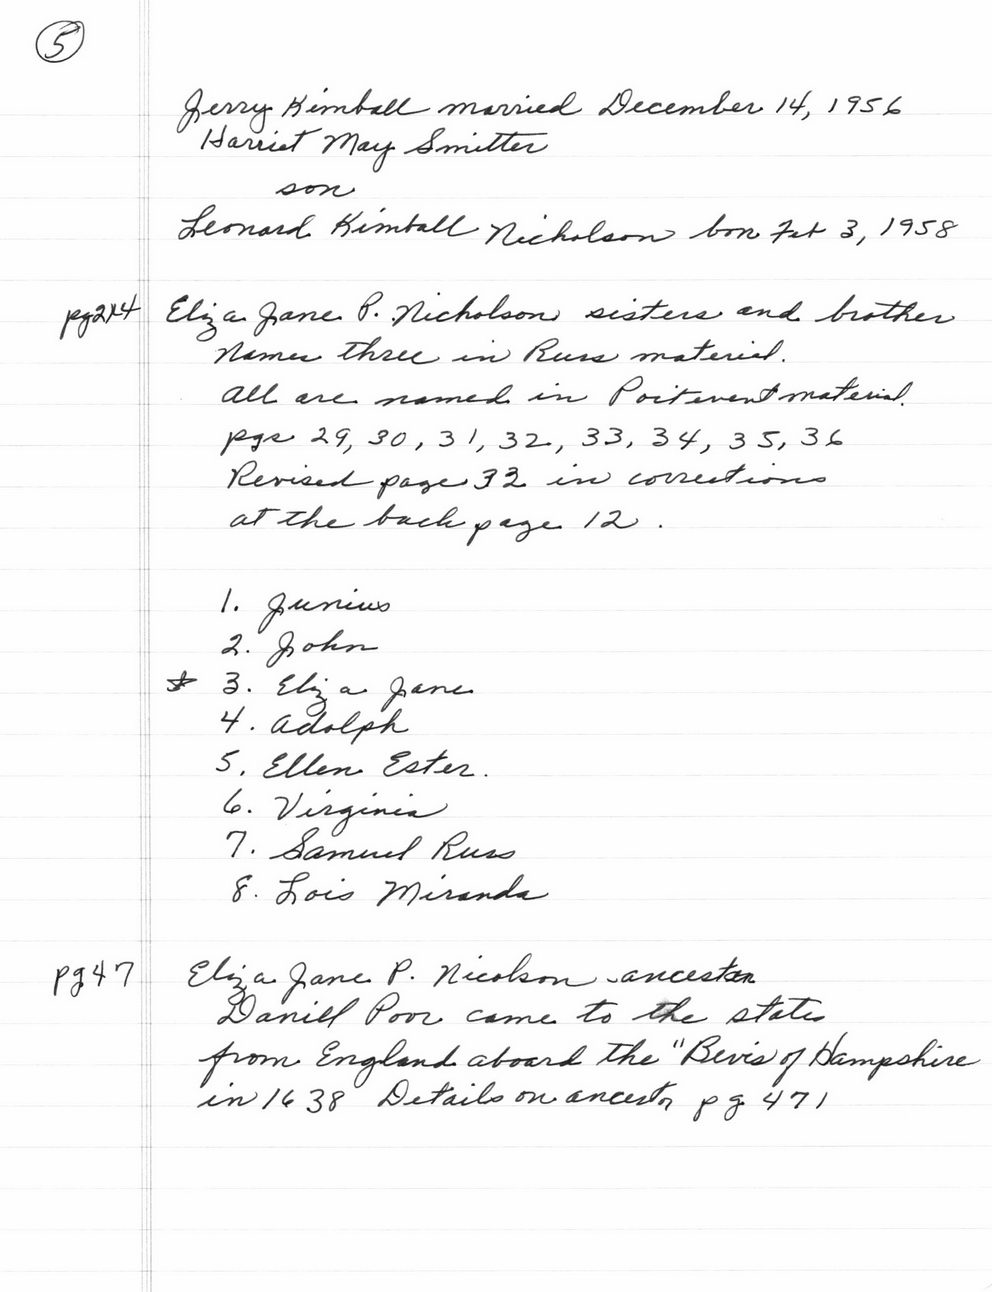 5
Jerry Kimball married December 14, 1956
Harriet May Smitter
son
Leonard Kimball Nicholson bon Feb 3, 1958
Eliza Jane P. Nicholson sisters and brother
names three in Russ material.
All are named in Poitevent material.
pgs 29, 30, 31, 32, 33, 34, 35, 36
Revised page 32 in corrections
at the back page 12.
1. Junius
2. John
* 3. Eliza Jane
4. Adolph
5. Ellen Ester.
6. Virginia
7. Samuel Russ
8. Lois Miranda
pg 47 Eliza Jane P. Nicolson ancestor
Daniel Poor came to the states
from England aboard the "Bevis of Hampshire
in 1638 Details on ancestor pg 471